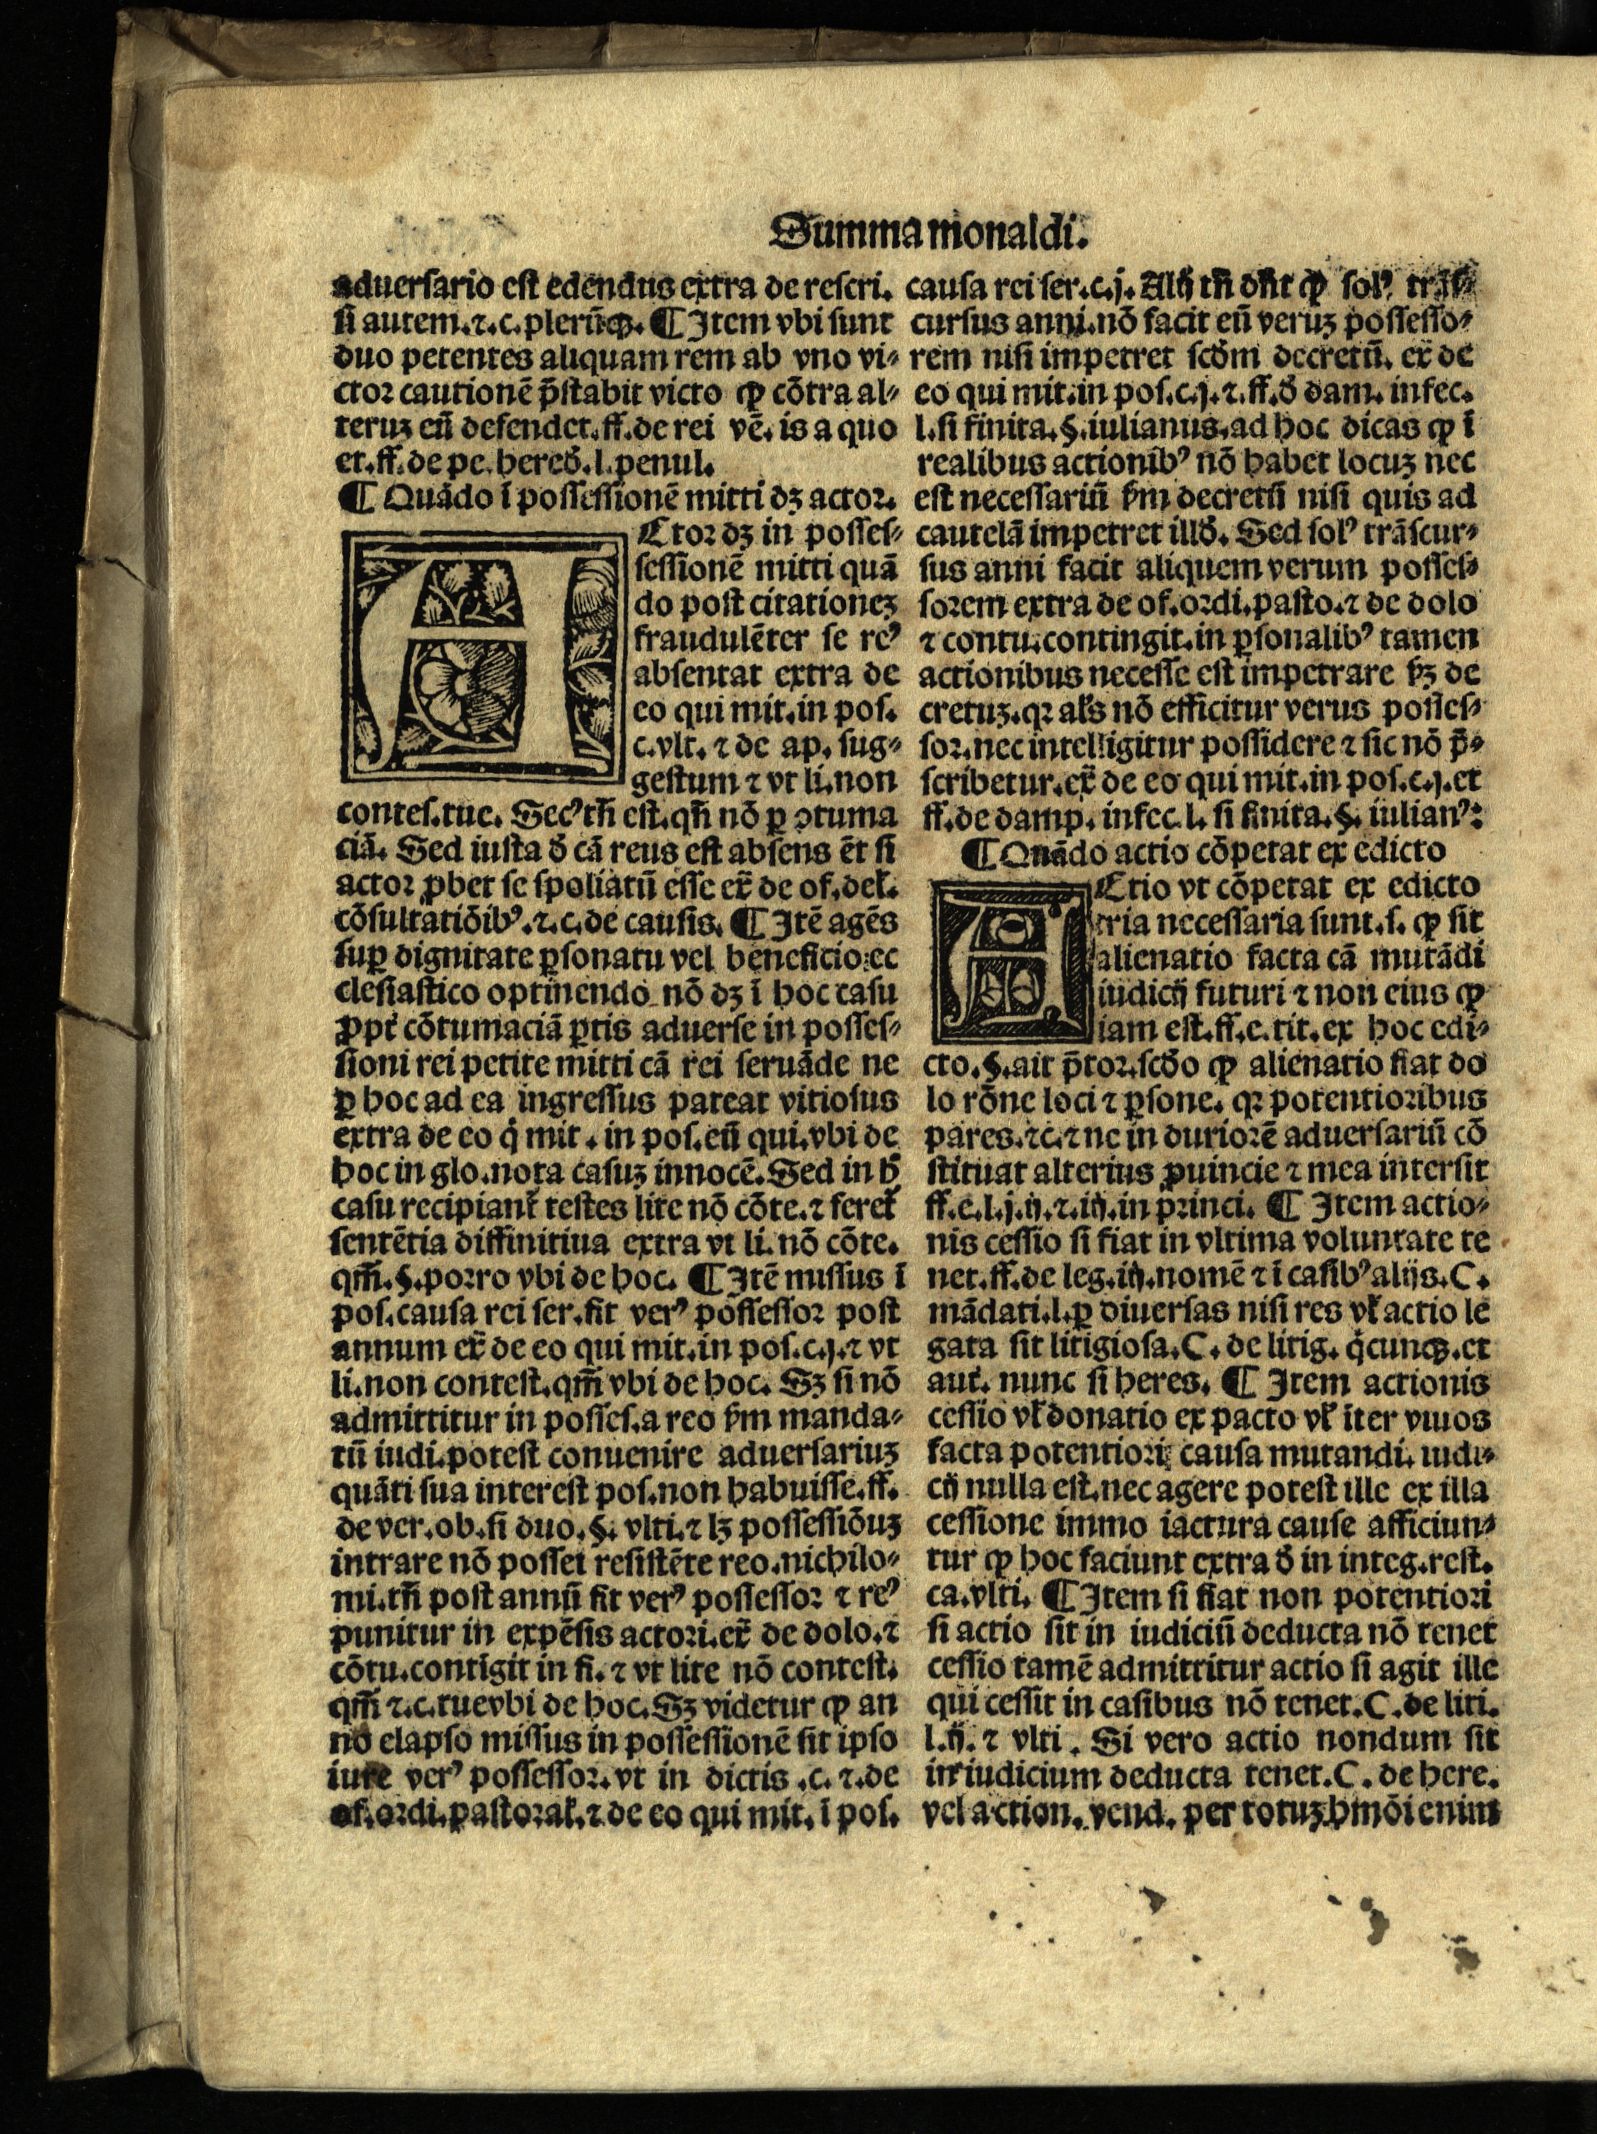 Summa monaldi.
aduersario est edendus extra de rescri.
si autem.⁊.c. plerūq̄₃. ¶ Item vbi sunt
duo petentes aliquam rem ab vno vi-
ctor cautionē p̄stabit victo ꝙ cōtra al-
teruꝫ eū defendet.ff.de rei vē. is a quo
et.ff.de pe. hered̄.l.penul.
¶ Quādo ī possessionē mitti dꝫ actor.
Actor dꝫ in posses-
sessionē mitti quā
do post citationeꝫ
fraudulēter se reꝰ
absentat extra de
eo qui mit.in pos.
c.vlt. ⁊ de ap. sug-
gestum ⁊ vt li.non
contes.tue. Secꝰ tn̄ est.qn̄ nō ꝑ ↄtuma
ciā. Sed iusta d̄ cā reus est absens ēt si
actor ꝓbet se spoliatū esse ex̄ de of.del̄.
cōsultatiōibꝰ.⁊.c.de causis. ¶ Itē agēs
suꝑ dignitate ꝑsonatu vel beneficio ec
clesiastico optinendo nō dꝫ ī hoc casu
ꝓpt̄ cōtumaciā ꝑtis aduerse in posses-
sioni rei petite mitti cā rei seruāde ne
ꝑ hoc ad ea ingressus pateat vitiosus
extra de eo q̇ mit. in pos.eū qui.vbi de
hoc in glo.nota casuꝫ innocē. Sed in h̄
casu recipiant̄ testes lite nō cōte.⁊ feret̄
sentētia diffinitiua extra vt li. nō cōte.
qm̄.§.porro vbi de hoc. ¶ Itē missus ī
pos.causa rei ser.fit verꝰ possessor post
annum ex̄ de eo qui mit.in pos.c.j.⁊ vt
li.non contest.qm̄ vbi de hoc. Sꝫ si nō
admittitur in posses.a reo ẜm manda-
tū iudi.potest conuenire aduersariuꝫ
quāti sua interest pos.non habuisse.ff.
de ver.ob.si duo.§. vlti.⁊ lꝫ possessiōuꝫ
intrare nō posset resistēte reo.nichilo-
mi.tn̄ post annū fit verꝰ possessor ⁊ reꝰ
punitur in expēsis actori.ex̄ de dolo.⁊
cōtu.contīgit in fi. ⁊ vt lite nō contest.
qm̄ ⁊.c.tue vbi de hoc. Sꝫ videtur ꝙ an
no elapso missus in possessionē fit ipso
iure verꝰ possessor. vt in dictis .c. ⁊.de
of.ordi.pastoral̄.⁊ de eo qui mit. ī pos.
causa rei ser.c.j. Alij tn̄ dn̄t ꝙ solꝰ trāſ-
cursus anni.nō facit eū veruꝫ possesso-
rem nisi impetret scd̄m decretū. ex̄ de
eo qui mit.in pos.c.j.⁊.ff.d̄ dam. infec.
l.si finita.§.iulianus.ad hoc dicas ꝙ ī
realibus actionibꝰ nō habet locuꝫ nec
est necessariū ẜm decretū nisi quis ad
cautelā impetret illd̄. Sed solꝰ trāscur-
sus anni facit aliquem verum posses-
sorem extra de of.ordi.pasto.⁊ de dolo
⁊ contu.contingit.in ꝑsonalibꝰ tamen
actionibus necesse est impetrare ẜꝫ de
cretuꝫ.qꝛ al̄s nō efficitur verus posses-
sor.nec intelligitur possidere ⁊ sic nō p̄-
scribetur.ex̄ de eo qui mit.in pos.c.j.et
ff.de damp. infec.l. si finita.§. iulianꝰ:
¶ Quādo actio cōpetat ex edicto
Actio vt cōpetat ex edicto
tria necessaria sunt.s. ꝙ sit
alienatio facta cā mutādi
iudicij futuri ⁊ non eius ꝙ
iam est.ff.e.tit.ex hoc edi-
cto.§.ait p̄tor.scd̄o ꝙ alienatio fiat do
lo rōne loci ⁊ ꝑsone. qꝛ potentioribus
pares.⁊c.⁊ ne in duriorē aduersariū cō
stituat alterius ꝓuincie ⁊ mea intersit
ff.e.l.j.ij.⁊.iij.in princi. ¶ Item actio-
nis cessio si fiat in vltima voluntate te
net.ff.de leg.iij.nomē ⁊ ī casibꝰ alijs.C.
mādati.l.ꝑ diuersas nisi res vl̄ actio le
gata sit litigiosa.C. de litig. q̇cunqꝫ.et
aut̄. nunc si heres. ¶ Item actionis
cessio vl̄ donatio ex pacto vl̄ īter viuos
facta potentiori causa mutandi iudi-
cij nulla est.nec agere potest ille ex illa
cessione immo iactura cause afficiun-
tur ꝙ hoc faciunt extra d̄ in integ.rest.
ca.vlti. ¶ Item si fiat non potentiori
si actio sit in iudiciū deducta nō tenet
cessio tamē admittitur actio si agit ille
qui cessit in casibus nō tenet.C.de liti.
l.ij. ⁊ vlti . Si vero actio nondum sit
in iudicium deducta tenet.C. de here.
vel action. vend. per totuꝫ hmōi enim